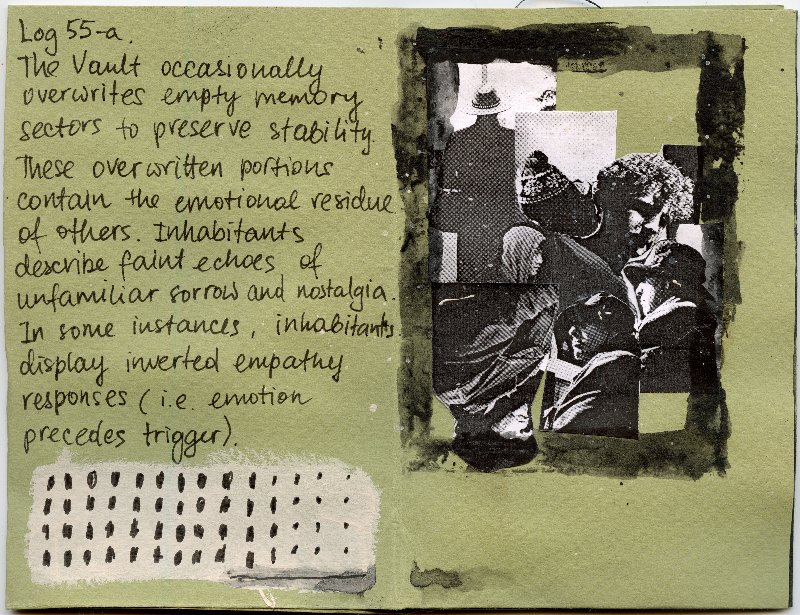 Log 55-a.
The Vault occasionally
overwrites empty memory
sectors to preserve stability.
These overwritten portions
contain the emotional residue
of others. Inhabitants
describe faint echoes of
unfamiliar sorrow and nostalgia.
In some instances, inhabitants
display inverted empathy
responses (i.e. emotion
precedes trigger).